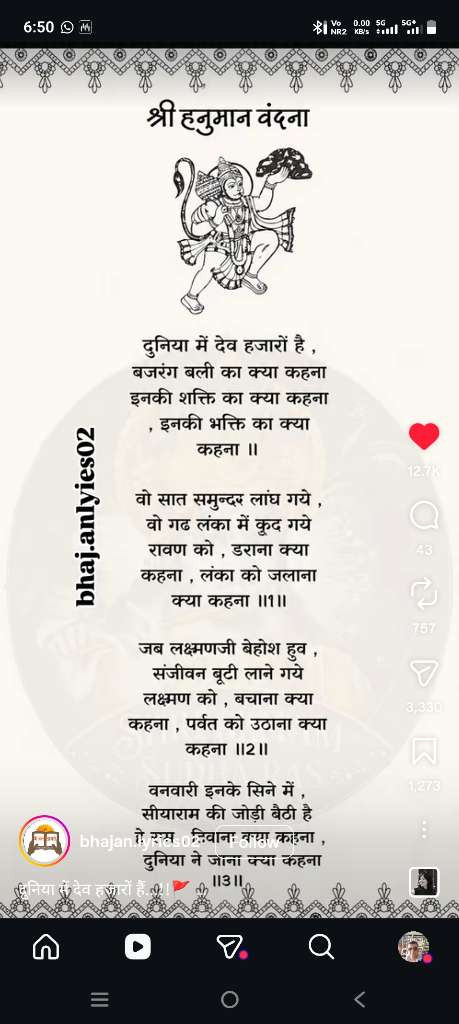 6:50
Vo NR2
0.00 KB/s
5G
5G+
श्री हनुमान वंदना
दुनिया में देव हजारों है ,
बजरंग बली का क्या कहना
इनकी शक्ति का क्या कहना
, इनकी भक्ति का क्या
कहना ॥
वो सात समुन्दर लांघ गये ,
वो गढ लंका में कूद गये
रावण को , डराना क्या
कहना , लंका को जलाना
क्या कहना ॥1॥
जब लक्ष्मणजी बेहोश हुव ,
संजीवन बूटी लाने गये
लक्ष्मण को , बचाना क्या
कहना , पर्वत को उठाना क्या
कहना ॥2॥
वनवारी इनके सिने में ,
सीयाराम की जोड़ी बैठी है
क्या कहना ,
दुनिया ने जाना क्या कहना
॥3॥
bhaj.anlyies02
12.7K
43
757
3,330
1,273
bhajan.lyrics02
Follow
दुनिया में देव हजारों हैं...!!🚩